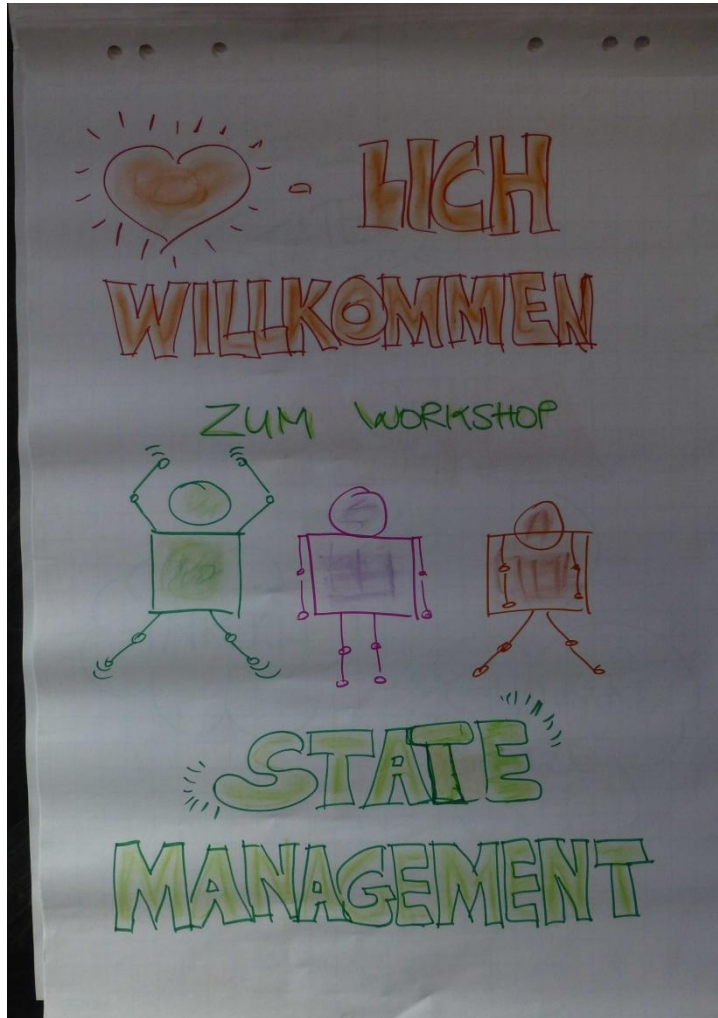 - LICH
WILLKOMMEN
ZUM WORKSHOP
STATE
MANAGEMENT